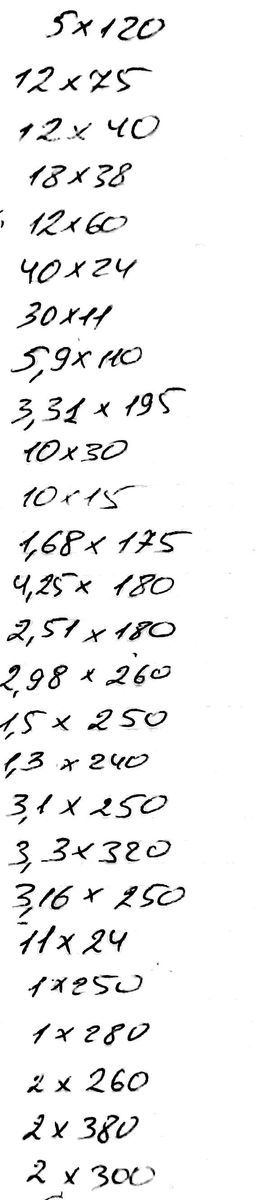 5x120
12x75
12x40
18x38
12x60
40x24
30x11
5,9x110
3,31x195
10x30
10x15
1,68x175
4,25x180
2,51x180
2,98x260
1,5x250
1,3x240
3,1x250
3,3x320
3,16x250
11x24
1x250
1x280
2x260
2x380
2x300